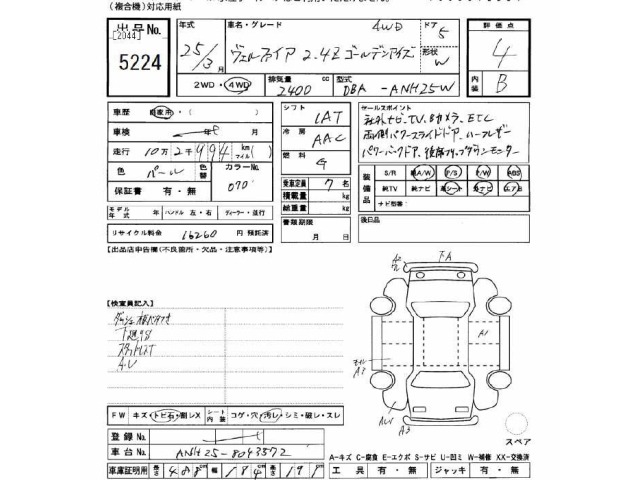 (複合機)対応用紙
出品No.
[2044]
5224
年式
25/3月
車名・グレード 4WD
ヴェルファイア 2.4Z ゴールデンアイズ
ドア 5
形状 W
2WD・4WD
排気量 2400 cc
型式 DBA-ANH25W
評価点
4
内装
B
車歴 自家用・( )
車検 年 月
走行 10万2千494 km(マイル)
色 パール 色替 カラーNo. 070
保証書 有・無
モデル年式 年 ハンドル 左・右 ディーラー・並行
リサイクル料金 16260 円 預託済
シフト
IAT
冷房
AAC
燃料
G
乗車定員 7 名
積載量 kg
総重量 kg
書類期限
月 日
セールスポイント
社外ナビ、TV、Bカメラ、ETC
両側パワースライドドア、ハーフレザー
パワーバックドア、後席フリップダウンモニター
装備品
S/R 純A/W P/S P/W ABS
純TV 純ナビ 革シート 外ナビ エアB
ナビ型番:
後日品
[出品店申告欄(不良箇所・欠品・注意事項等)]
[検査員記入]
下廻サビ
FW キズ・トビ石・割レX シート内装 コゲ・穴・汚レ・シミ・破レ・スレ
登録No.
車台No. ANH25-8043572
車庫証明用 長さ 484 幅 184 高さ 191
下A
A1
A3
スペア
A-キズ C-腐食 E-エクボ S-サビ U-凹ミ W-補修 XX-交換済
工具 有・無 ジャッキ 有・無